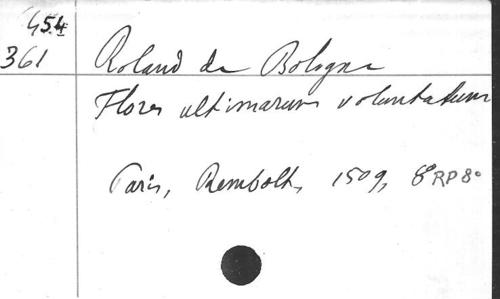 454
361 Roland de Bologne
Flores ultimarum voluntatum
Paris, Rembolt, 1509, 8° RP 8°